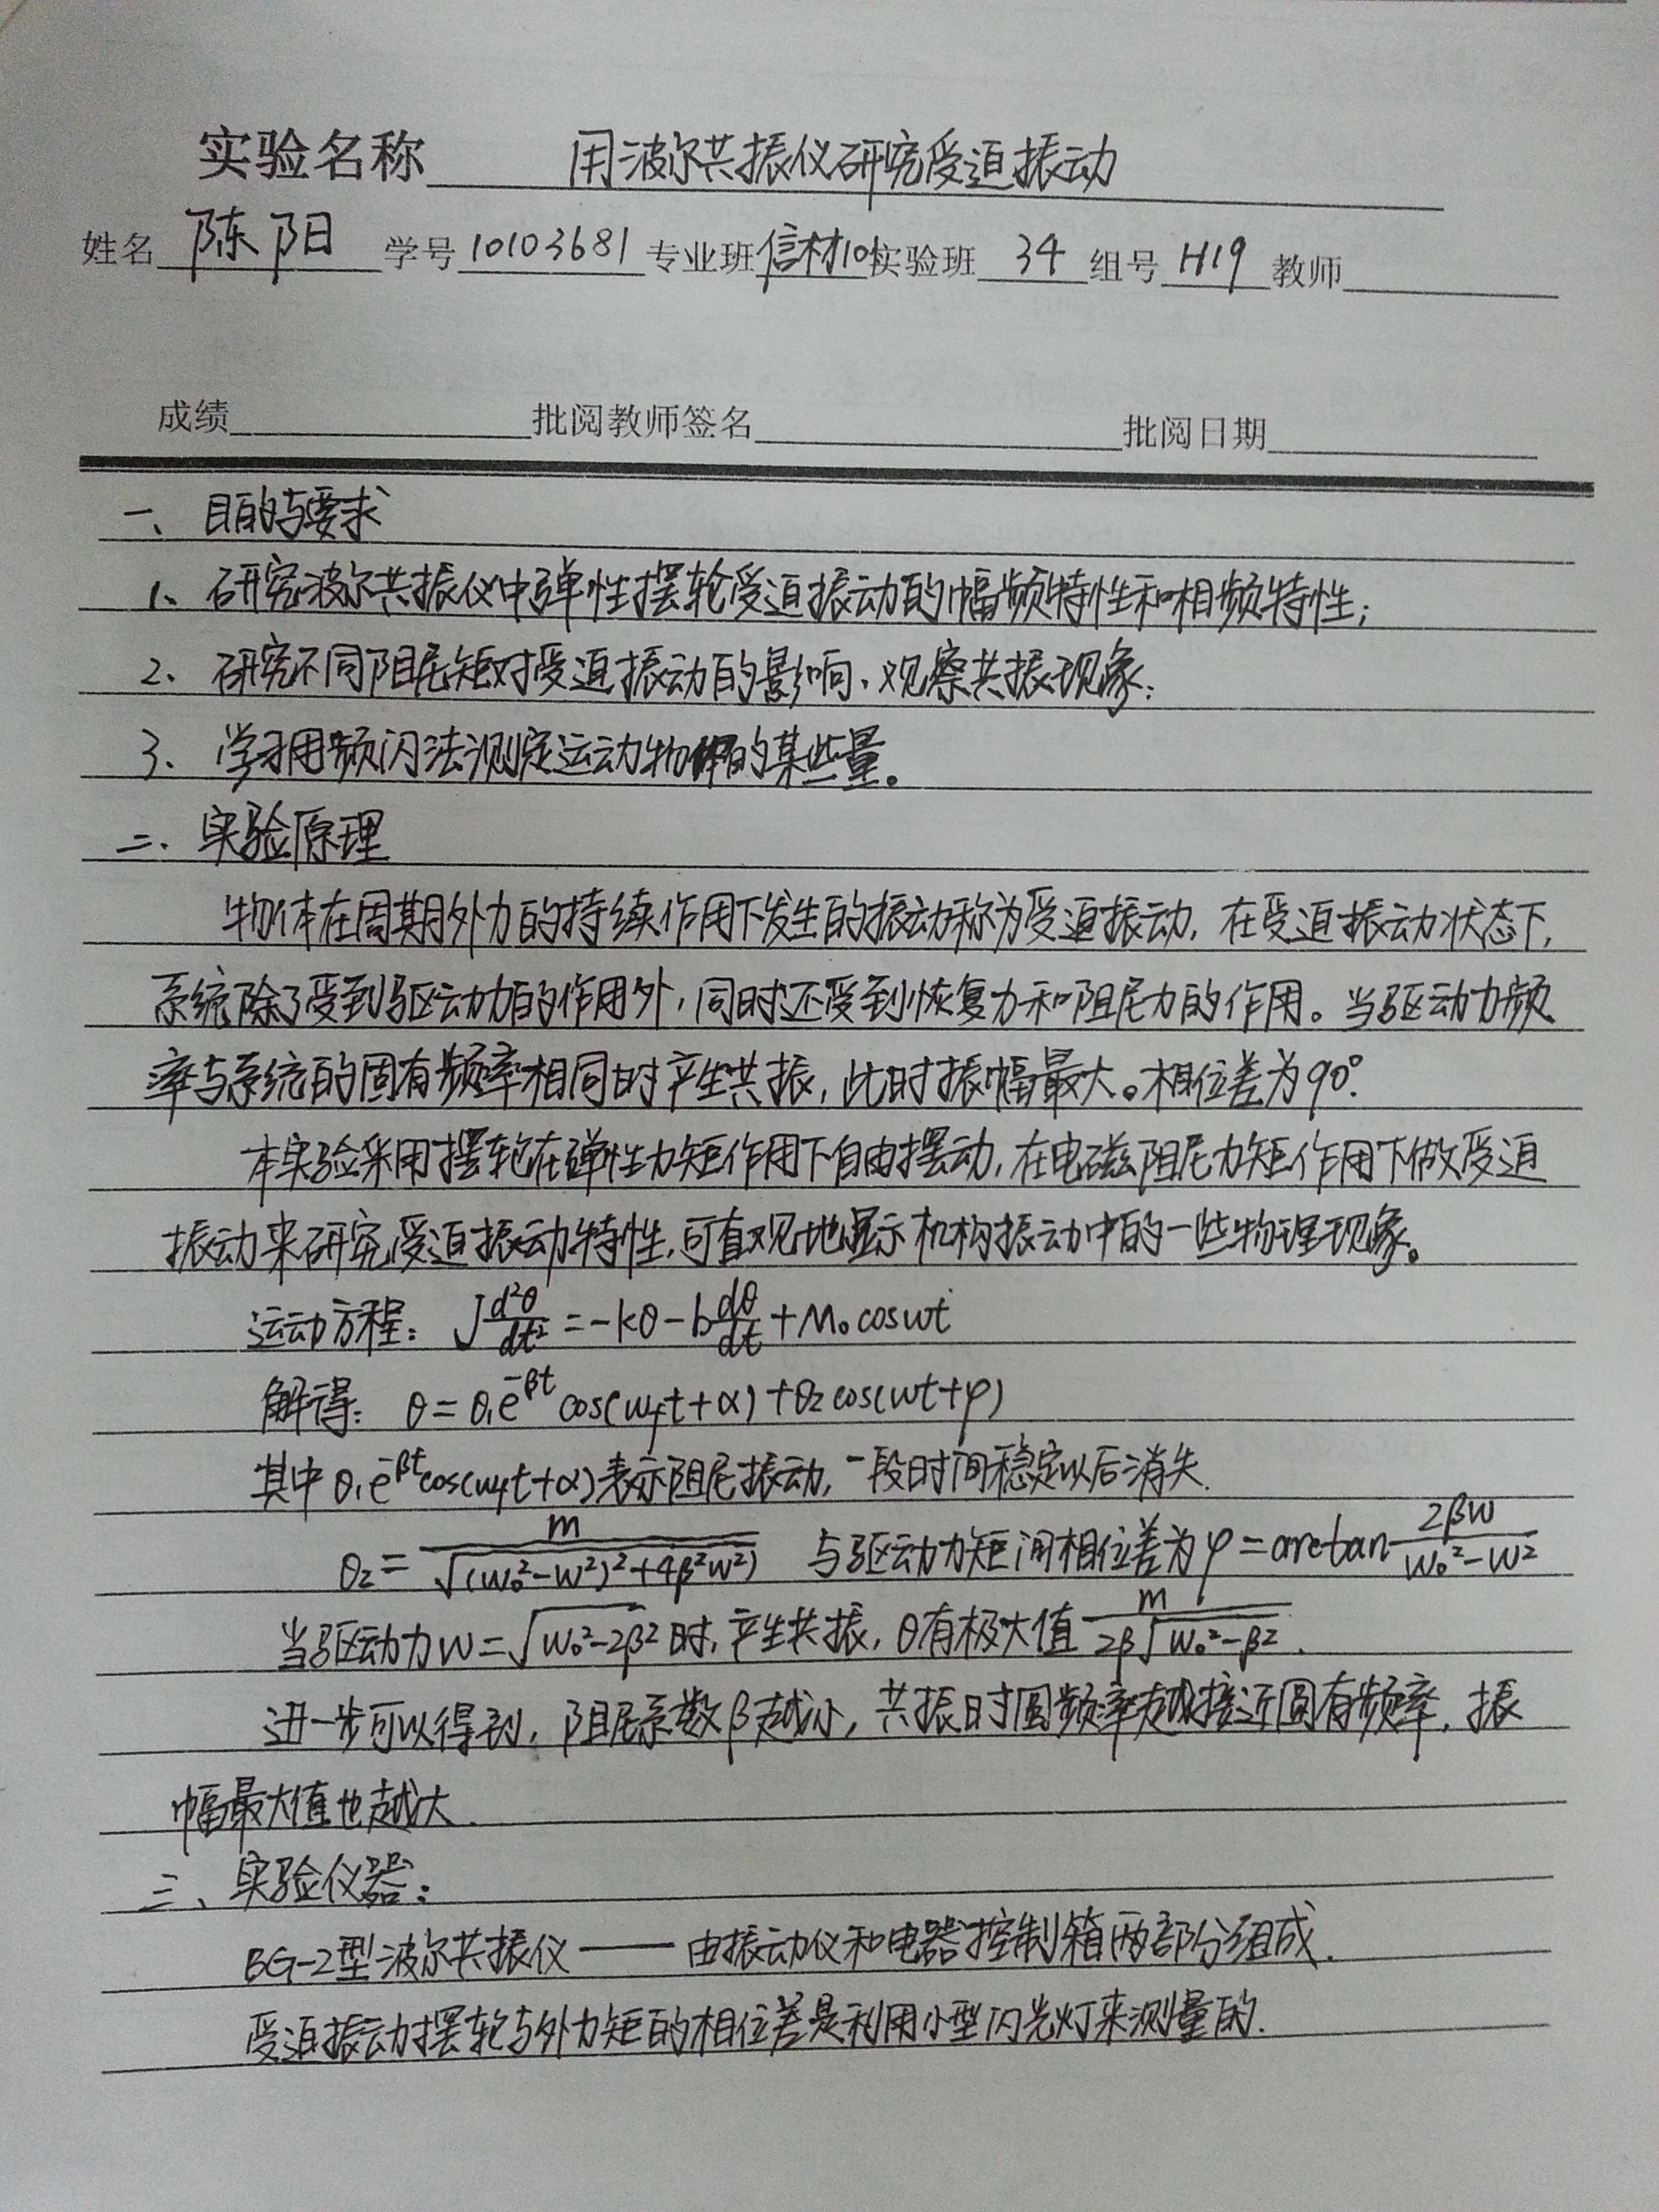 实验名称 用波尔共振仪研究受迫振动
姓名 陈阳 学号 10103681 专业班 信材101 实验班 34 组号 H19 教师
成绩 批阅教师签名 批阅日期
一、目的与要求
1、研究波尔共振仪中弹性摆轮受迫振动的幅频特性和相频特性;
2、研究不同阻尼矩对受迫振动的影响、观察共振现象;
3、学习用频闪法测定运动物体的某些量。
二、实验原理
物体在周期外力的持续作用下发生的振动称为受迫振动,在受迫振动状态下,
系统除了受到驱动力的作用外,同时还受到恢复力和阻尼力的作用。当驱动力频
率与系统的固有频率相同时产生共振,此时振幅最大。相位差为90°.
本实验采用摆轮在弹性力矩作用下自由摆动,在电磁阻尼力矩作用下做受迫
振动来研究受迫振动特性,可直观地显示机构振动中的一些物理现象。
运动方程: J d²θ/dt² = -kθ - b dθ/dt + M₀ cosωt
解得: θ = θ₁e^(-βt) cos(ω_f t+α) + θ₂ cos(ωt+φ)
其中 θ₁e^(-βt) cos(ω_f t+α) 表示阻尼振动,一段时间稳定以后消失.
θ₂ = m/√((ω₀²-ω²)²+4β²ω²) 与驱动力矩间相位差为 φ = arctan 2βω/(ω₀²-ω²)
当驱动力 ω = √(ω₀²-2β²) 时,产生共振,θ有极大值 m/(2β√(ω₀²-β²)).
进一步可以得到,阻尼系数β越小,共振时圆频率越接近固有频率,振
幅最大值也越大.
三、实验仪器:
BG-2型波尔共振仪——由振动仪和电器控制箱两部分组成.
受迫振动摆轮与外力矩的相位差是利用小型闪光灯来测量的.